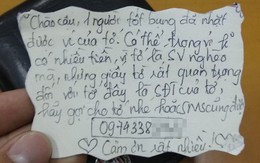 Chào cậu, 1 người tốt bụng đã nhặt
được ví của tớ. Có thể trong ví k
có nhiều tiền, vì tớ là SV nghèo
mà, những giấy tờ rất quan trọng
đối với tớ đây là SĐT của tớ,
hãy gọi cho tớ nhé hoặc SMS cũng được
0974338
Cảm ơn rất nhiều!